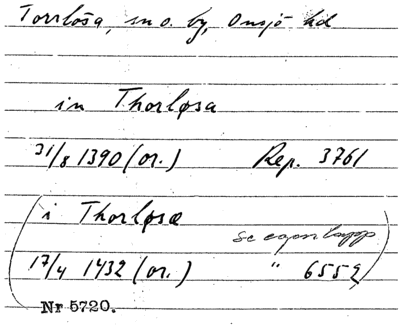 Torrlösa, sn o. by, Onsjö hd
in Thorløsa
31/8 1390 (or.) Rep. 3761
(i Thorløsæ
se egen lapp
17/4 1432 (or.) " 6552)
Nr 5720.